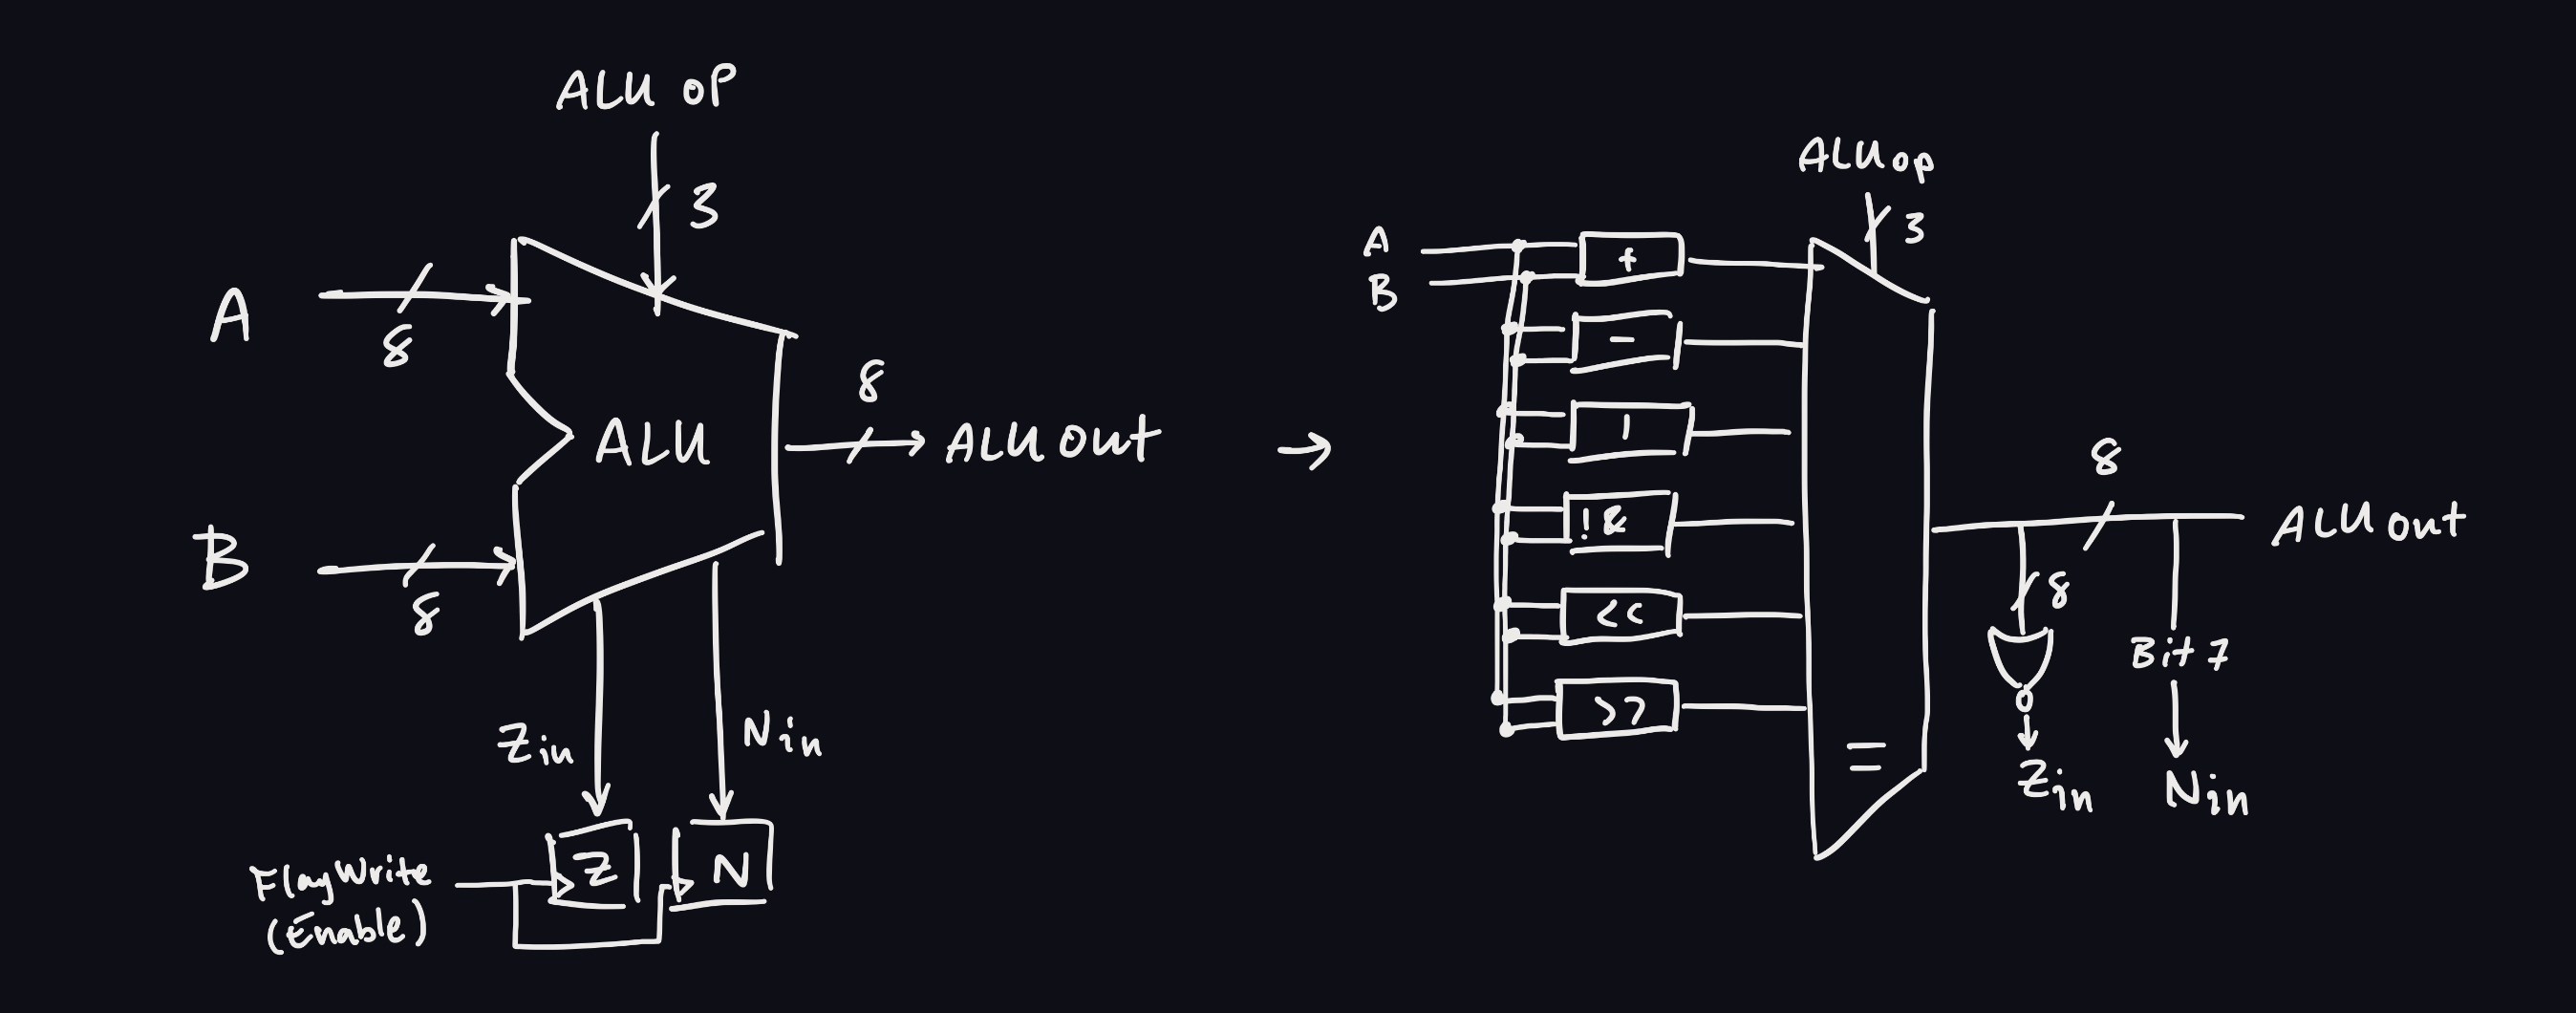 ALU OP
3
A
8
ALU
8
ALU out
B
8
Zin
Nin
Z
N
Flag Write
(Enable)
→
ALU op
3
A
B
+
-
|
!&
<<
>>
=
8
ALU out
8
Bit 7
Zin
Nin